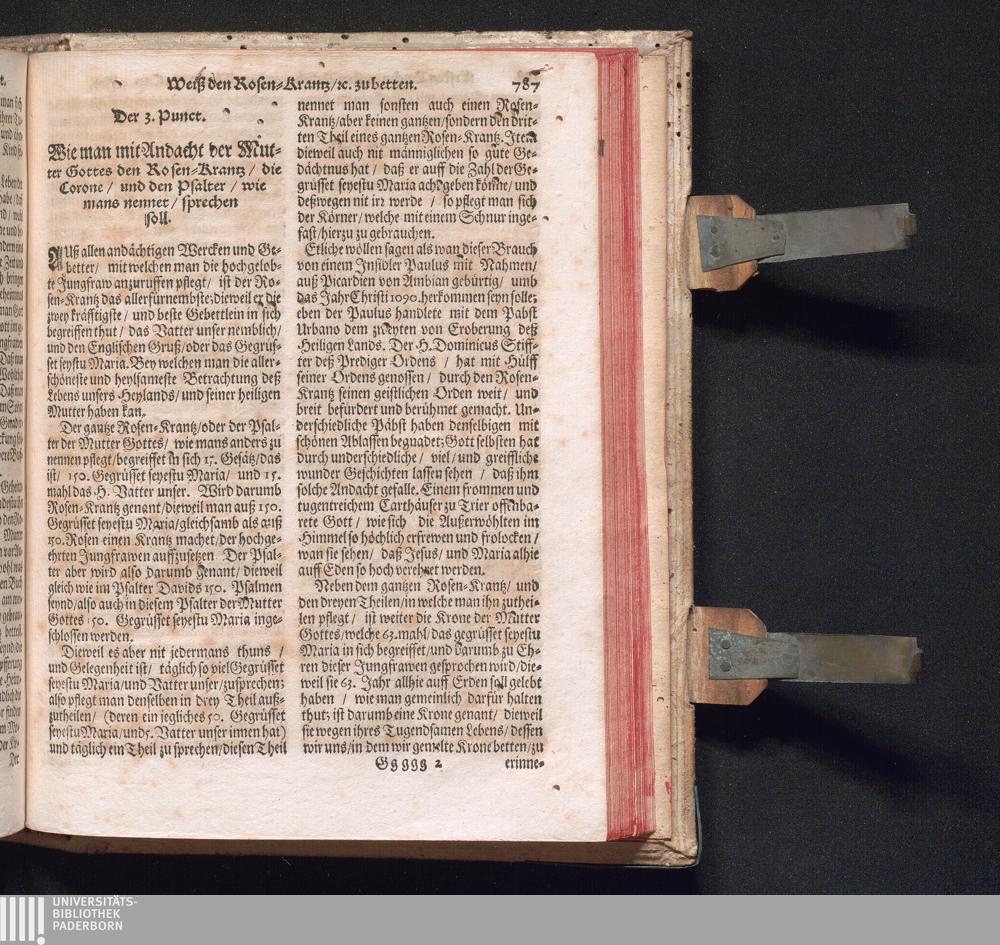 Weiß den Rosen-Krantz/ꝛc. zu betten. 787
Der 3. Punct.
Wie man mit Andacht der Mut-
ter Gottes den Rosen-Krantz / die
Corone / und den Psalter / wie
mans nennet / sprechen
soll.
Auß allen andächtigen Wercken und Ge-
better / mit welchen man die hochgelob-
te Jungfraw anzuruffen pflegt / ist der Ro-
sen-Krantz das allerfürnembste; dieweil er die
zwey kräfftigste / und beste Gebettlein in sich
begreiffen thut / das Vatter unser nemblich/
und den Englischen Gruß/oder das Gegrüs-
set seystu Maria. Bey welchen man die aller-
schöneste und heylsameste Betrachtung deß
Lebens unsers Heylands/und seiner heiligen
Mutter haben kan.
Der gantze Rosen-Krantz/oder der Psal-
ter der Mutter Gottes/ wie mans anders zu
nennen pflegt/begreiffet in sich 15. Gesätz/das
ist/ 150. Gegrüsset seyestu Maria/ und 15.
mahl das H. Vatter unser. Wird darumb
Rosen-Krantz genant/dieweil man auß 150.
Gegrüsset seyestu Maria/gleichsamb als auß
150. Rosen einen Krantz machet/der hochge-
ehrten Jungfrawen auffzusetzen. Der Psal-
ter aber wird also darumb genant/ dieweil
gleich wie im Psalter Davids 150. Psalmen
seynd/also auch in diesem Psalter der Mutter
Gottes 150. Gegrüsset seyestu Maria inge-
schlossen werden.
Dieweil es aber nit jedermans thuns /
und Gelegenheit ist/ täglich so viel Gegrüsset
seyestu Maria/und Vatter unser/zusprechen;
also pflegt man denselben in drey Theil auß-
zutheilen/ (deren ein jegliches 50. Gegrüsset
seyestu Maria/und 5. Vatter unser innen hat)
und täglich ein Theil zu sprechen/diesen Theil
nennet man sonsten auch einen Rosen-
Krantz/aber keinen gantzen/sondern den drit-
ten Theil eines gantzen Rosen-Krantz. Item
dieweil auch nit männiglichen so gute Ge-
dächtnus hat / daß er auff die Zahl der Ge-
grüsset seyestu Maria acht geben könne/und
deßwegen nit irr werde / so pflegt man sich
der Körner/welche mit einem Schnur inge-
fast/hierzu zu gebrauchen.
Etliche wöllen sagen als wan dieser Brauch
von einem Insidler Paulus mit Nahmen/
auß Picardien von Ambian gebürtig/ umb
das Jahr Christi 1090. herkommen seyn solle;
eben der Paulus handlete mit dem Pabst
Urbano dem zweyten von Eroberung deß
Heiligen Lands. Der H. Dominicus Stiff-
ter deß Prediger Ordens / hat mit Hülff
seiner Ordens genossen / durch den Rosen-
Krantz seinen geistlichen Orden weit/ und
breit befürdert und berühmet gemacht. Un-
derschiedliche Päbst haben denselbigen mit
schönen Ablassen begnadet; Gott selbsten hat
durch underschiedliche / viel/und greiffliche
wunder Geschichten lassen sehen / daß ihm
solche Andacht gefalle. Einem frommen und
tugentreichem Carthäuser zu Trier offenba-
rete Gott / wie sich die Außerwöhlten im
Himmel so höchlich erfrewen und frolocken /
wan sie sehen/ daß Jesus/ und Maria alhie
auff Eden so hoch verehret werden.
Neben dem gantzen Rosen-Krantz/ und
den dreyen Theilen/in welche man ihn zuthei-
len pflegt / ist weiter die Krone der Mutter
Gottes/welche 63. mahl/das gegrüsset seyestu
Maria in sich begreiffet/und darumb zu Eh-
ren dieser Jungfrawen gesprochen wird/die-
weil sie 63. Jahr allhie auff Erden soll gelebt
haben / wie man gemeinlich darfür halten
thut; ist darumb eine Krone genant/ dieweil
sie wegen ihres Tugendsamen Lebens/ dessen
wir uns/in dem wir gemelte Krone betten/zu
Ggggg 2 erinne-
UNIVERSITÄTS-
BIBLIOTHEK
PADERBORN